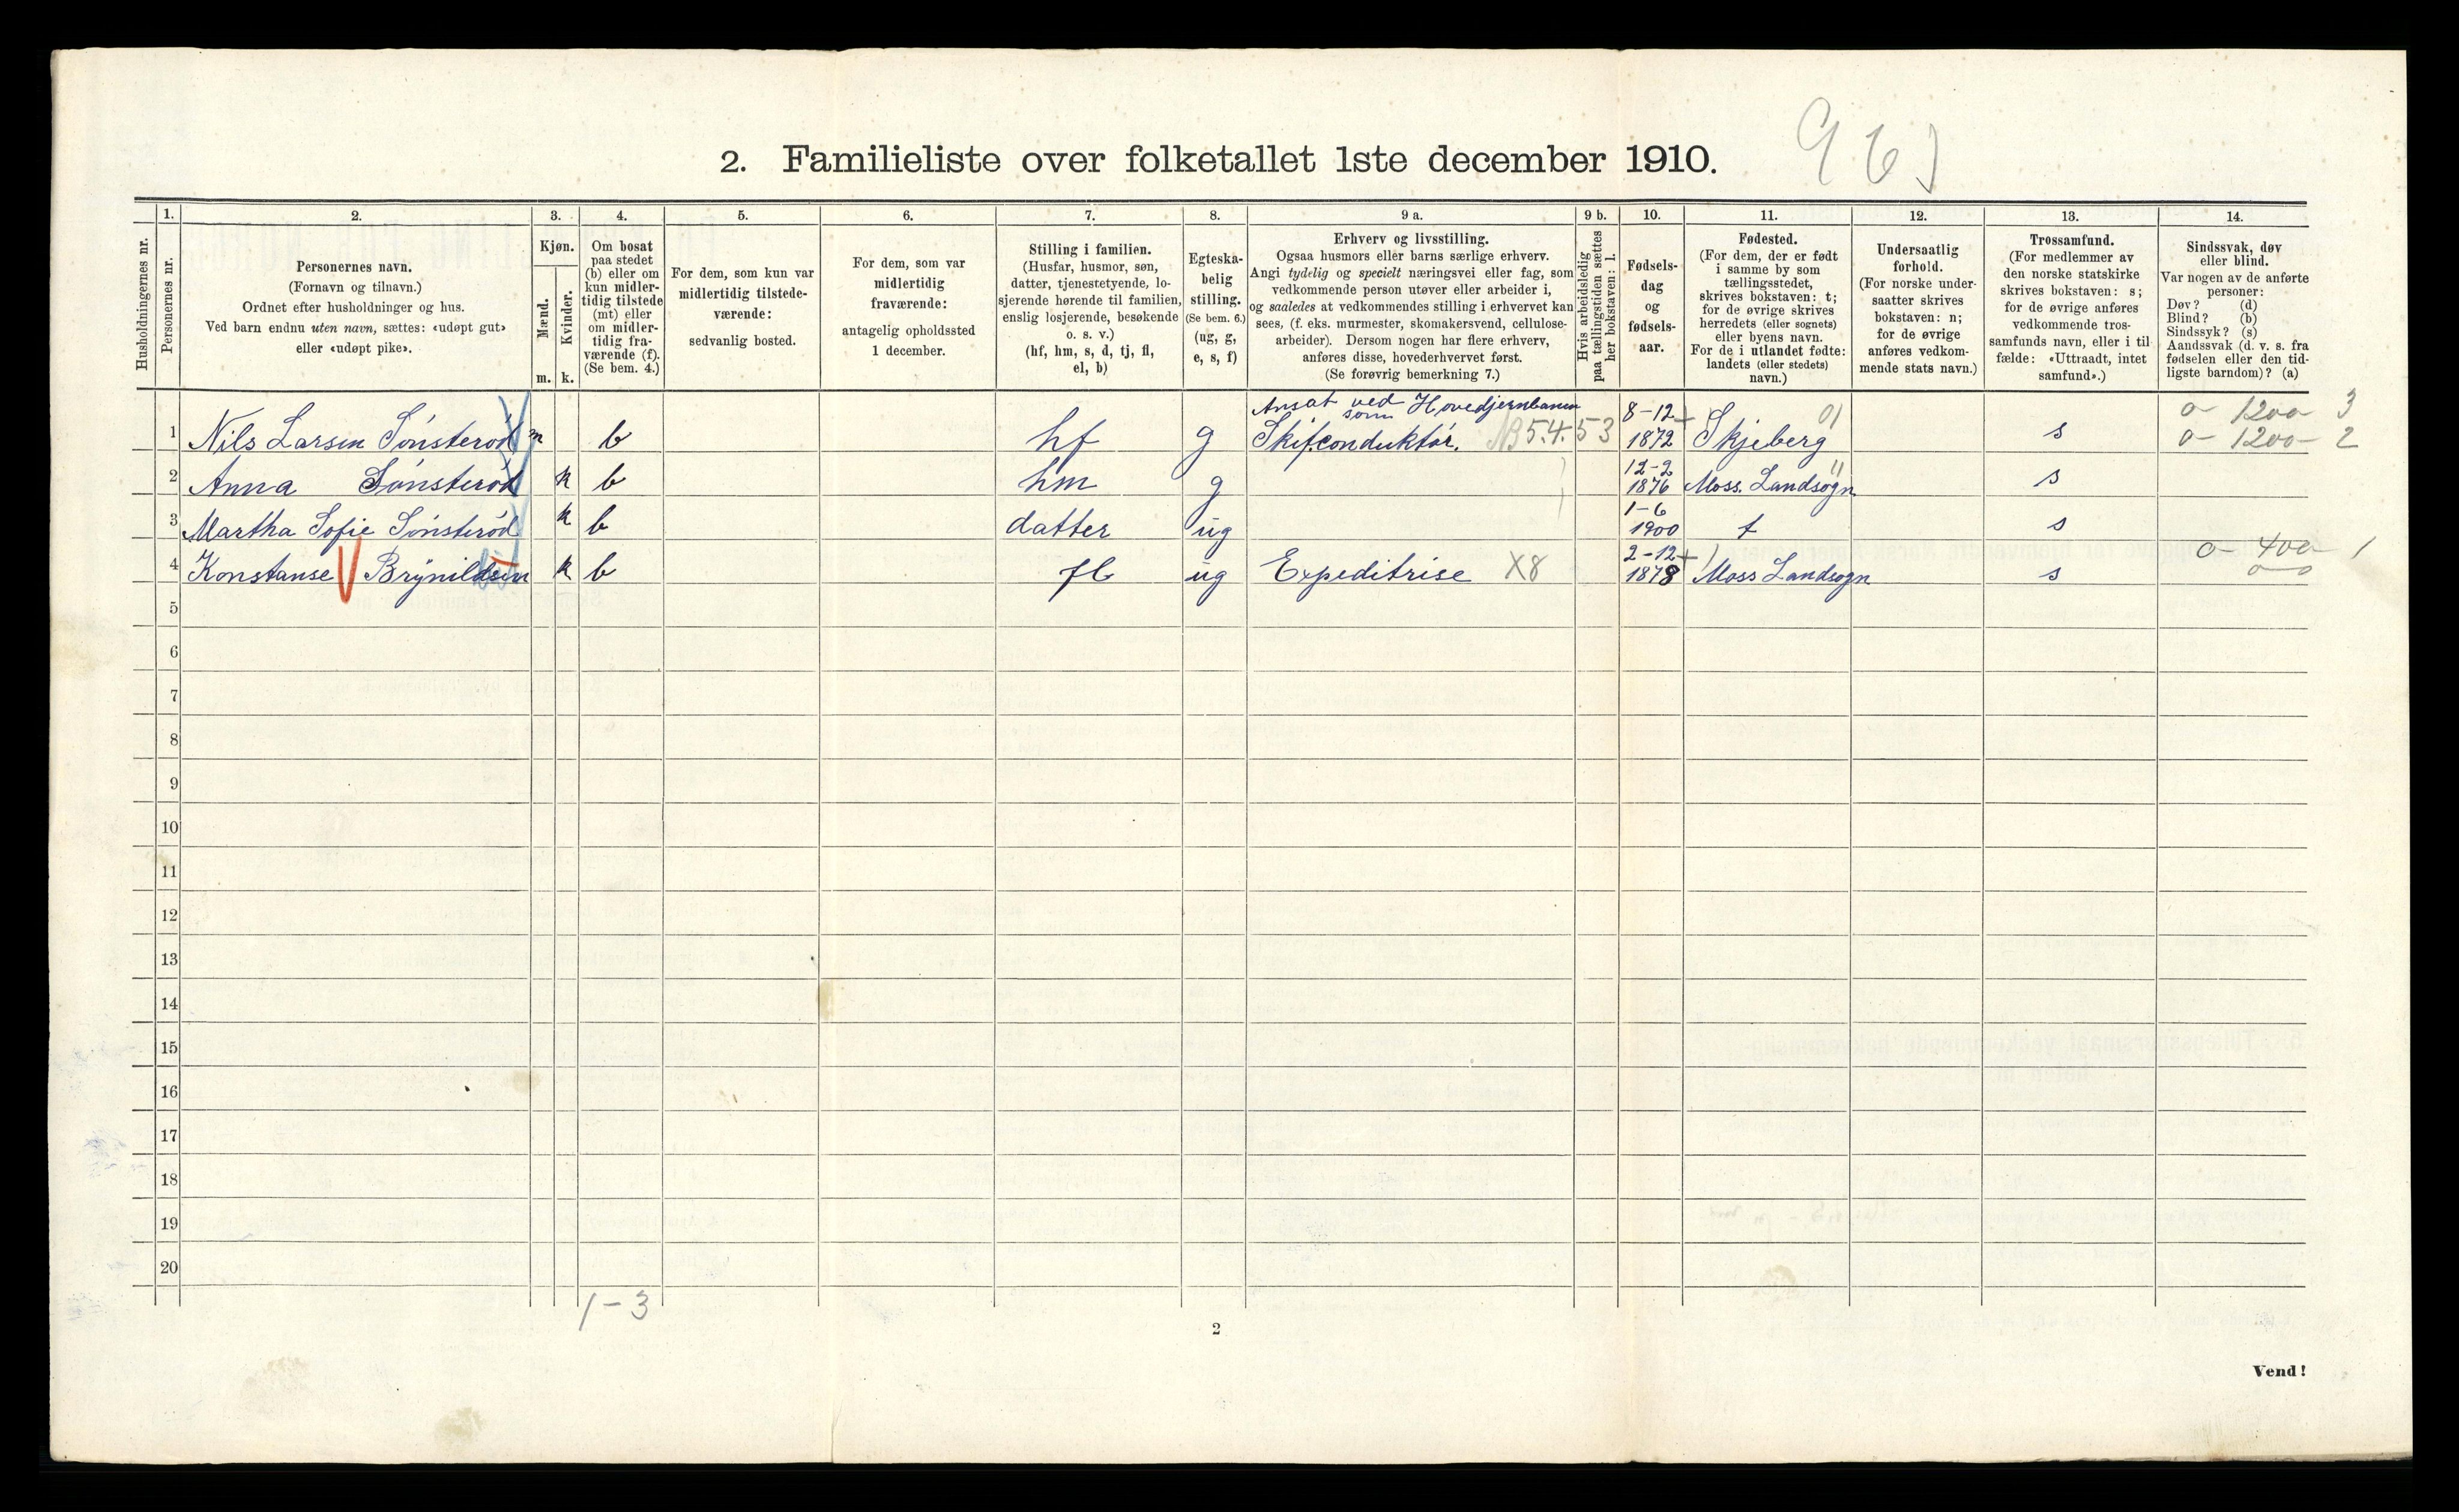 2. Familieliste over folketallet 1ste december 1910.
1. 2. 3. 4. 5. 6. 7. 8. 9 a. 9 b. 10. 11. 12. 13. 14.
Husholdningernes nr.
Personernes nr.
Personernes navn.
(Fornavn og tilnavn.)
Ordnet efter husholdninger og hus.
Ved barn endnu uten navn, sættes: «udøpt gut»
eller «udøpt pike».
Kjøn.
Mænd.
Kvinder.
m. k.
Om bosat
paa stedet
(b) eller om
kun midler-
tidig tilstede
(mt) eller
om midler-
tidig fra-
værende (f).
(Se bem. 4.)
For dem, som kun var
midlertidig tilstede-
værende:
sedvanlig bosted.
For dem, som var
midlertidig
fraværende:
antagelig opholdssted
1 december.
Stilling i familien.
(Husfar, husmor, søn,
datter, tjenestetyende, lo-
sjerende hørende til familien,
enslig losjerende, besøkende
o. s. v.)
(hf, hm, s, d, tj, fl,
el, b)
Egteska-
belig
stilling.
(Se bem. 6.)
(ug, g,
e, s, f)
Erhverv og livsstilling.
Ogsaa husmors eller barns særlige erhverv.
Angi tydelig og specielt næringsvei eller fag, som
vedkommende person utøver eller arbeider i,
og saaledes at vedkommendes stilling i erhvervet kan
sees, (f. eks. murmester, skomakersvend, cellulose-
arbeider). Dersom nogen har flere erhverv,
anføres disse, hovederhvervet først.
(Se forøvrig bemerkning 7.)
Hvis arbeidsledig
paa tællingstiden sættes
her bokstaven: l.
Fødsels-
dag
og
fødsels-
aar.
Fødested.
(For dem, der er født
i samme by som
tællingsstedet,
skrives bokstaven: t;
for de øvrige skrives
herredets (eller sognets)
eller byens navn.
For de i utlandet fødte:
landets (eller stedets)
navn.)
Undersaatlig
forhold.
(For norske under-
saatter skrives
bokstaven: n;
for de øvrige
anføres vedkom-
mende stats navn.)
Trossamfund.
(For medlemmer av
den norske statskirke
skrives bokstaven: s;
for de øvrige anføres
vedkommende tros-
samfunds navn, eller i til-
fælde: «Uttraadt, intet
samfund».)
Sindssvak, døv
eller blind.
Var nogen av de anførte
personer:
Døv? (d)
Blind? (b)
Sindssyk? (s)
Aandssvak (d. v. s. fra
fødselen eller den tid-
ligste barndom)? (a)
Ansat ved Hovedjernbanen 8-12 0 - 1200 3
som
1 Nils Larsen Sønsterød m b hf g Skifteconduktør. 5.4.53 1872 Skjeberg s 0 - 1200 - 2
12-2
2 Anna Sønsterød k b hm g 1876 Moss. Landsogn s
1-6
3 Martha Sofie Sønsterød k b datter ug 1900 t s
2-12 0 - 400 1
4 Konstanse Brynildsen k b fl ug Expeditrise X8 1878 Moss Landsogn s
5
6
7
8
9
10
11
12
13
14
15
16
17
18
19
20
1-3
2
Vend!